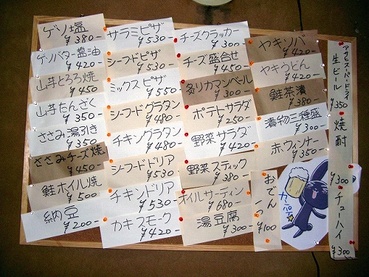 ゲソ塩
¥380-
ゲソバター醤油
¥420-
山芋とろろ焼
¥450
山芋たんざく
¥350
ささみ湯引き
¥350
ささみチーズ焼
¥450
鮭ホイル焼
¥500
納豆
¥200-
サラミピザ
¥530
シーフードピザ
¥530-
ミックスピザ
¥550
シーフードグラタン
¥480-
チキングラタン
¥480
シーフードドリア
¥530
チキンドリア
¥530
カキスモーク
¥420
チーズクラッカー
¥300
チーズ盛合せ
¥450
炙リカマンベール
¥300
ポテトサラダ
¥250
野菜サラダ
¥420
野菜スティック
¥380
オイルサーディン
¥680
湯豆腐
¥300
ヤキソバ
¥420
やきうどん
¥420
鮭茶漬
¥380
漬物三種盛
¥300-
ポークウィンナー
¥350
おでん
¥100
生ビール
¥350
焼酎
¥300
チューハイ
¥300